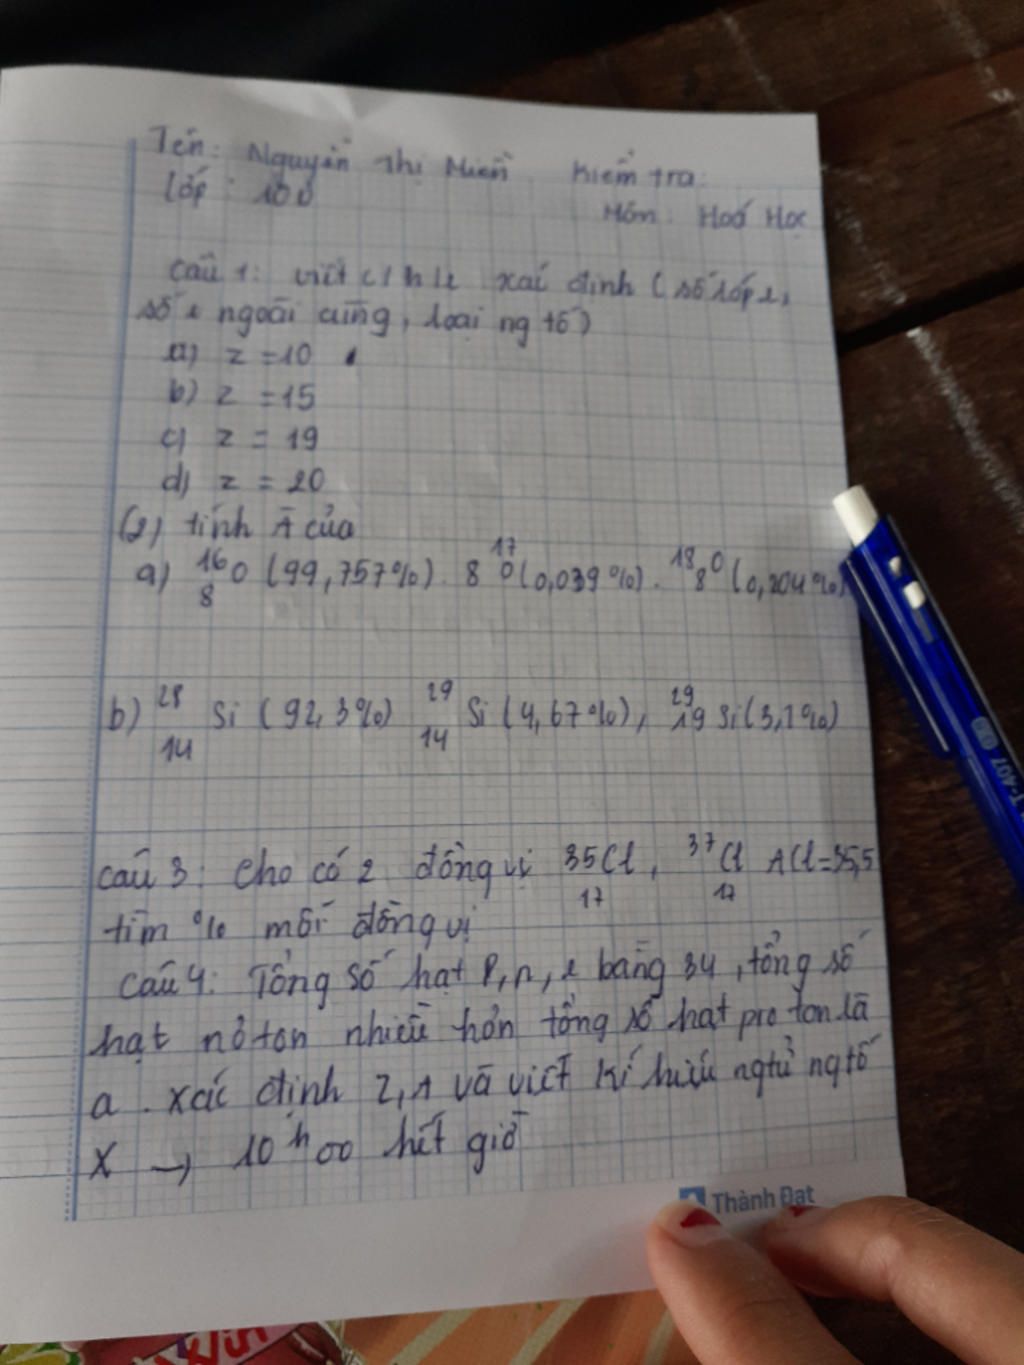 Tên: Nguyễn Thị Miền Kiểm tra:
Lớp: 10
Môn: Hoá Học
Câu 1: viết xác định (số lớp e,
số e ngoài cùng, loại ng tố)
a) z = 10
b) z = 15
c) z = 19
d) z = 20
(2) tính Ā của
a) ¹⁶₈O (99,757%). ¹⁷₈O (0,039%). ¹⁸₈O (0,204%)
b) ²⁸₁₄Si (92,3%) ²⁹₁₄Si (4,67%), ²⁹₁₉Si (3,1%)
Câu 3: Cho có 2 đồng vị ³⁵₁₇Cl, ³⁷₁₇Cl ACl=35,5
tìm % mỗi đồng vị
Câu 4: Tổng số hạt p, n, e bằng 34, tổng số
hạt nơton nhiều hơn tổng số hạt proton là
a. xác định Z, A và viết kí hiệu ngtử ng tố
X → 10h00 hết giờ
Thành Đạt
T-407